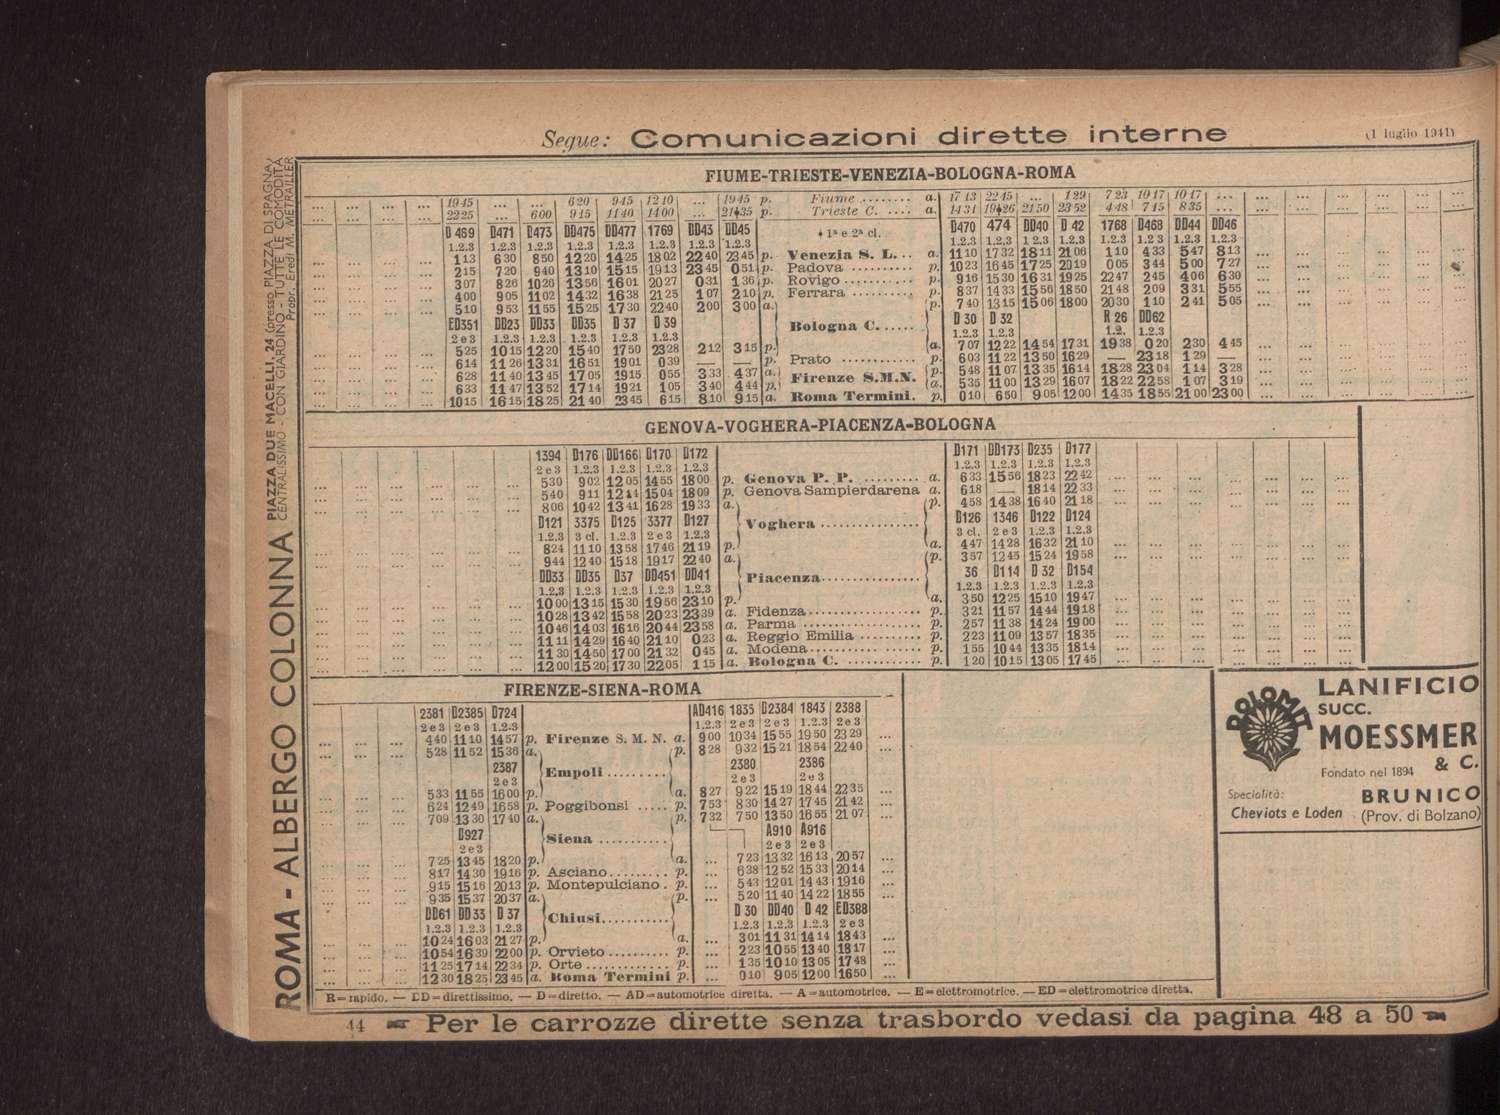 Segue: Comunicazioni dirette interne (1 luglio 1941)
FIUME-TRIESTE-VENEZIA-BOLOGNA-ROMA
... ... ... ... 19 45 ... ... 6 20 9 45 12 10 ... 19 45 p. Fiume ........ a. 17 13 22 45 ... 1 29 7 23 10 17 10 17 ...
... ... ... ... 22 25 ... 6 00 9 15 11 40 14 00 ... 21♦35 p. Trieste C. .... a. 14 31 19♦26 21 50 23 52 4 48 7 15 8 35 ...
D 469 D471 D473 DD475 DD477 1769 DD43 DD45 ♦ 1ª e 2ª cl. D470 474 DD40 D 42 1768 D468 DD44 DD46
1.2.3 1.2.3 1.2.3 1.2.3 1.2.3 1.2.3 1.2.3 1.2.3 1.2.3 1.2.3 1.2.3 1.2.3 1.2.3 1.2.3 1.2.3 1.2.3
1 13 6 30 8 50 12 20 14 25 18 02 22 40 23 45 p. Venezia S. L. .. a. 11 10 17 32 18 11 21 06 1 10 4 33 5 47 8 13
2 15 7 20 9 40 13 10 15 15 19 13 23 45 0 51 p. Padova .......... p. 10 23 16 45 17 25 20 19 0 05 3 44 5 00 7 27
3 07 8 26 10 26 13 56 16 01 20 27 0 31 1 36 p. Rovigo ........... p. 9 16 15 30 16 31 19 25 22 47 2 45 4 06 6 30
4 00 9 05 11 02 14 32 16 38 21 25 1 07 2 10 p. Ferrara .......... p. 8 37 14 33 15 56 18 50 21 48 2 09 3 31 5 55
5 10 9 53 11 55 15 25 17 30 22 40 2 00 3 00 a. p. 7 40 13 15 15 06 18 00 20 30 1 10 2 41 5 05
ED351 DD23 DD33 DD35 D 37 D 39 Bologna C. ..... D 30 D 32 R 26 DD62
2 e 3 1.2.3 1.2.3 1.2.3 1.2.3 1.2.3 1.2.3 1.2.3 1.2. 1.2.3
5 25 10 15 12 20 15 40 17 50 23 28 2 12 3 15 p. a. 7 07 12 22 14 54 17 31 19 38 0 20 2 30 4 45
6 14 11 26 13 31 16 51 19 01 0 39 — — p. Prato ........... p. 6 03 11 22 13 50 16 29 — 23 18 1 29 —
6 28 11 40 13 45 17 05 19 15 0 55 3 33 4 37 a. Firenze S.M.N. p. 5 48 11 07 13 35 16 14 18 28 23 04 1 14 3 28
6 33 11 47 13 52 17 14 19 21 1 05 3 40 4 44 p. a. 5 35 11 00 13 29 16 07 18 22 22 58 1 07 3 19
10 15 16 15 18 25 21 40 23 45 6 15 8 10 9 15 a. Roma Termini. p. 0 10 6 50 9 05 12 00 14 35 18 55 21 00 23 00
GENOVA-VOGHERA-PIACENZA-BOLOGNA
1394 D176 DD166 D170 D172 D171 DD173 D235 D177
2 e 3 1.2.3 1.2.3 1.2.3 1.2.3 1.2.3 1.2.3 1.2.3 1.2.3
5 30 9 02 12 05 14 55 18 00 p. Genova P. P. ......... a. 6 33 15 56 18 23 22 42
5 40 9 11 12 14 15 04 18 09 p. Genova Sampierdarena a. 6 18 — 18 14 22 33
8 06 10 42 13 41 16 28 19 33 a. p. 4 58 14 38 16 40 21 18
D121 3375 D125 3377 D127 Voghera ............... D126 1346 D122 D124
1.2.3 3 cl. 1.2.3 2 e 3 1.2.3 3 cl. 2 e 3 1.2.3 1.2.3
8 24 11 10 13 58 17 46 21 19 p. a. 4 47 14 28 16 32 21 10
9 44 12 40 15 18 19 17 22 40 a. p. 3 57 12 45 15 24 19 58
DD33 DD35 D37 DD451 DD41 Piacenza............... 36 D114 D 32 D154
1.2.3 1.2.3 1.2.3 1.2.3 1.2.3 1.2.3 1.2.3 1.2.3 1.2.3
10 00 13 15 15 30 19 56 23 10 p. a. 3 50 12 25 15 10 19 47
10 28 13 42 15 58 20 23 23 39 a. Fidenza................ p. 3 21 11 57 14 44 19 18
10 46 14 03 16 16 20 44 23 58 a. Parma ................. p. 2 57 11 38 14 24 19 00
11 11 14 29 16 40 21 10 0 23 a. Reggio Emilia ......... p. 2 23 11 09 13 57 18 35
11 30 14 50 17 00 21 32 0 45 a. Modena................. p. 1 55 10 44 13 35 18 14
12 00 15 20 17 30 22 05 1 15 a. Bologna C. ........... p. 1 20 10 15 13 05 17 45
FIRENZE-SIENA-ROMA
2381 D2385 D724 AD416 1835 D2384 1843 2388
2 e 3 2 e 3 1.2.3 1.2.3 2 e 3 2 e 3 1.2.3 2 e 3
4 40 11 10 14 57 p. Firenze S. M. N. a. 9 00 10 34 15 55 19 50 23 29 ...
5 28 11 52 15 36 a. p. 8 28 9 32 15 21 18 54 22 40 ...
2387 Empoli ......... 2380 2386
2 e 3 2 e 3 2 e 3
5 33 11 55 16 00 p. a. 8 27 9 22 15 19 18 44 22 35 ...
6 24 12 49 16 58 p. Poggibonsi ..... p. 7 53 8 30 14 27 17 45 21 42 ...
7 09 13 30 17 40 a. p. 7 32 7 50 13 50 16 55 21 07 ...
D927 Siena .......... A910 A916
2 e 3 2 e 3 2 e 3
7 25 13 45 18 20 p. a. ... 7 23 13 32 16 13 20 57 ...
8 17 14 30 19 16 p. Asciano........ p. ... 6 38 12 52 15 33 20 14 ...
9 15 15 16 20 13 p. Montepulciano . p. ... 5 43 12 01 14 43 19 16 ...
9 35 15 37 20 37 a. p. ... 5 20 11 40 14 22 18 55 ...
DD61 DD 33 D 37 Chiusi.......... D 30 DD40 D 42 ED388
1.2.3 1.2.3 1.2.3 1.2.3 1.2.3 1.2.3 2 e 3
10 24 16 03 21 27 p. a. ... 3 01 11 31 14 14 18 43 ...
10 54 16 39 22 00 p. Orvieto......... p. ... 2 23 10 55 13 40 18 17 ...
11 25 17 14 22 34 p. Orte ........... p. ... 1 35 10 10 13 05 17 48 ...
12 30 18 25 23 45 a. Roma Termini p. ... 0 10 9 05 12 00 16 50 ...
R = rapido. — DD = direttissimo. — D = diretto. — AD = automotrice diretta. — A = automotrice. — E = elettromotrice. — ED = elettromotrice diretta.
44 Per le carrozze dirette senza trasbordo vedasi da pagina 48 a 50
ROMA - ALBERGO COLONNA
PIAZZA DUE MACELLI, 24 (presso PIAZZA DI SPAGNA)
CENTRALISSIMO - CON GIARDINO - TUTTE LE COMODITÀ
Propr. Eredi M. METRAILLER
DOLOMIT
LANIFICIO
SUCC.
MOESSMER
& C.
Fondato nel 1894
Specialità:
Cheviots e Loden
BRUNICO
(Prov. di Bolzano)